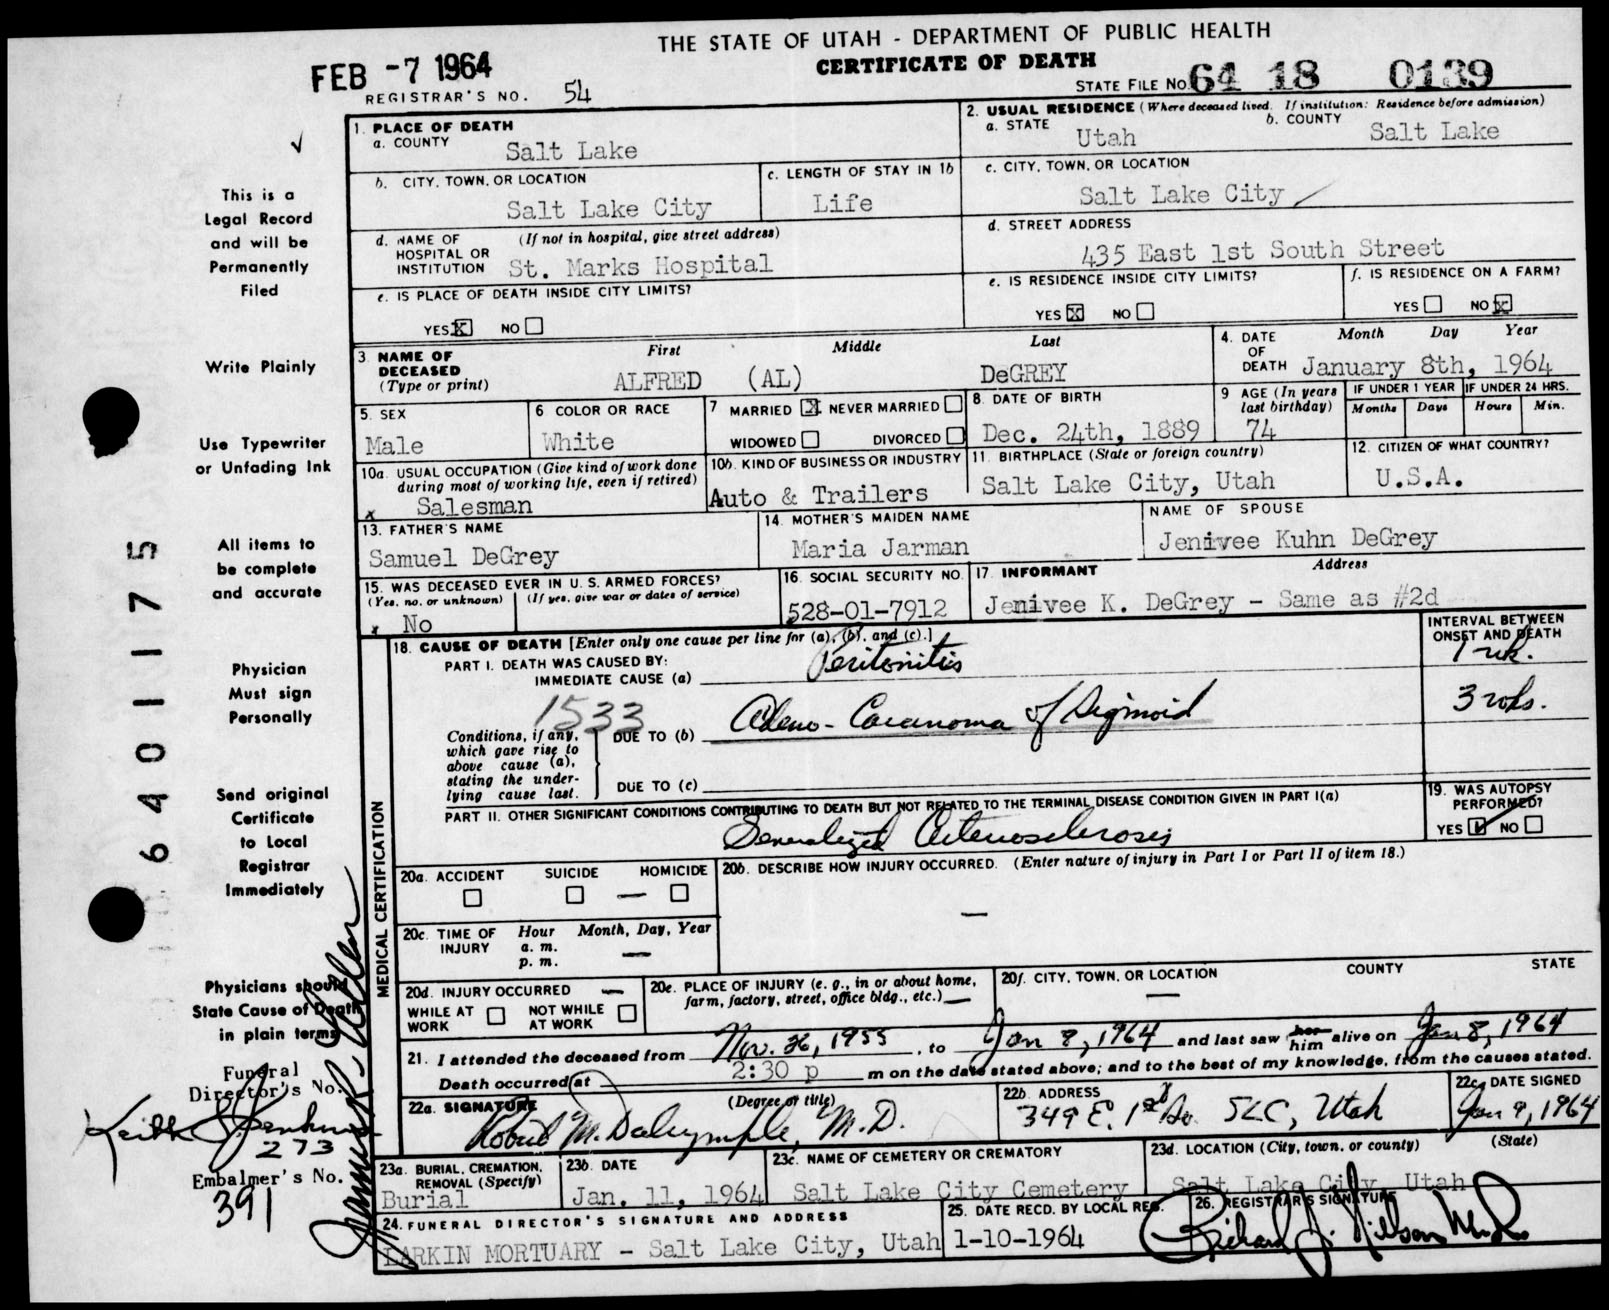 THE STATE OF UTAH - DEPARTMENT OF PUBLIC HEALTH
CERTIFICATE OF DEATH
FEB -7 1964
REGISTRAR'S NO. 54
STATE FILE NO. 64 18 0139
1. PLACE OF DEATH
a. COUNTY Salt Lake
2. USUAL RESIDENCE (Where deceased lived. If institution: Residence before admission)
a. STATE Utah b. COUNTY Salt Lake
b. CITY, TOWN, OR LOCATION Salt Lake City
c. LENGTH OF STAY IN 1b Life
c. CITY, TOWN, OR LOCATION Salt Lake City
d. NAME OF HOSPITAL OR INSTITUTION (If not in hospital, give street address) St. Marks Hospital
d. STREET ADDRESS 435 East 1st South Street
e. IS PLACE OF DEATH INSIDE CITY LIMITS?
YES X NO
e. IS RESIDENCE INSIDE CITY LIMITS?
YES X NO
f. IS RESIDENCE ON A FARM?
YES NO X
3 NAME OF DECEASED (Type or print)
First Middle Last
ALFRED (AL) DeGREY
4. DATE OF DEATH Month Day Year
January 8th, 1964
5. SEX Male
6 COLOR OR RACE White
7 MARRIED X NEVER MARRIED
WIDOWED DIVORCED
8. DATE OF BIRTH Dec. 24th, 1889
9 AGE (In years last birthday) 74
IF UNDER 1 YEAR Months Days
IF UNDER 24 HRS. Hours Min.
10a. USUAL OCCUPATION (Give kind of work done during most of working life, even if retired)
x Salesman
10b. KIND OF BUSINESS OR INDUSTRY
Auto & Trailers
11. BIRTHPLACE (State or foreign country)
Salt Lake City, Utah
12. CITIZEN OF WHAT COUNTRY?
U.S.A.
13. FATHER'S NAME
Samuel DeGrey
14. MOTHER'S MAIDEN NAME
Maria Jarman
NAME OF SPOUSE
Jenivee Kuhn DeGrey
15. WAS DECEASED EVER IN U. S. ARMED FORCES?
(Yes, no. or unknown) (If yes, give war or dates of service)
x No
16. SOCIAL SECURITY NO.
528-01-7912
17. INFORMANT Address
Jenivee K. DeGrey - Same as #2d
18. CAUSE OF DEATH [Enter only one cause per line for (a), (b), and (c).]
INTERVAL BETWEEN ONSET AND DEATH
PART I. DEATH WAS CAUSED BY:
IMMEDIATE CAUSE (a) Peritonitis 1 wk.
1533
Conditions, if any, which gave rise to above cause (a), stating the underlying cause last.
DUE TO (b) Adeno-Carcinoma of Sigmoid 3 wks.
DUE TO (c)
PART II. OTHER SIGNIFICANT CONDITIONS CONTRIBUTING TO DEATH BUT NOT RELATED TO THE TERMINAL DISEASE CONDITION GIVEN IN PART I(a)
Generalized Arteriosclerosis
19. WAS AUTOPSY PERFORMED?
YES NO
MEDICAL CERTIFICATION
20a. ACCIDENT SUICIDE HOMICIDE
20b. DESCRIBE HOW INJURY OCCURRED. (Enter nature of injury in Part I or Part II of item 18.)
20c. TIME OF INJURY Hour Month, Day, Year
a. m.
p. m.
20d. INJURY OCCURRED
WHILE AT WORK NOT WHILE AT WORK
20e. PLACE OF INJURY (e. g., in or about home, farm, factory, street, office bldg., etc.)
20f. CITY, TOWN, OR LOCATION COUNTY STATE
21. I attended the deceased from Nov. 26, 1955, to Jan 8, 1964 and last saw her him alive on Jan 8, 1964
Death occurred at 2:30 p m on the date stated above; and to the best of my knowledge, from the causes stated.
22a. SIGNATURE (Degree or title)
Robert M. Dalrymple, M.D.
22b. ADDRESS
349 E. 1st So. SLC, Utah
22c. DATE SIGNED
Jan 9, 1964
23a. BURIAL, CREMATION, REMOVAL (Specify)
Burial
23b. DATE
Jan. 11, 1964
23c. NAME OF CEMETERY OR CREMATORY
Salt Lake City Cemetery
23d. LOCATION (City, town, or county) (State)
Salt Lake City, Utah
24. FUNERAL DIRECTOR'S SIGNATURE AND ADDRESS
LARKIN MORTUARY - Salt Lake City, Utah
25. DATE RECD. BY LOCAL REG.
1-10-1964
26. REGISTRAR'S SIGNATURE
This is a
Legal Record
and will be
Permanently
Filed
Write Plainly
Use Typewriter
or Unfading Ink
All items to
be complete
and accurate
Physician
Must sign
Personally
Send original
Certificate
to Local
Registrar
Immediately
Physicians should
State Cause of Death
in plain terms
Funeral
Director's No.
273
Embalmer's No.
391
6401175